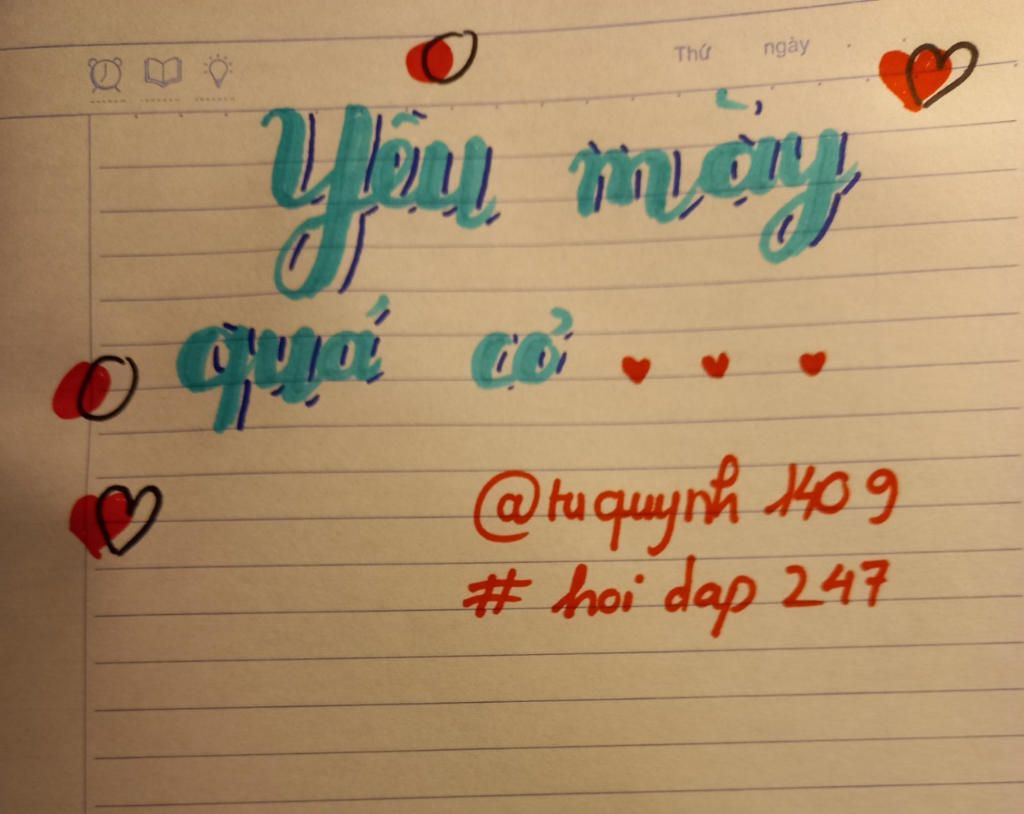 Thứ ngày
Yêu mày
quá cỏ
@tuquynh 1409
# hoi dap 247